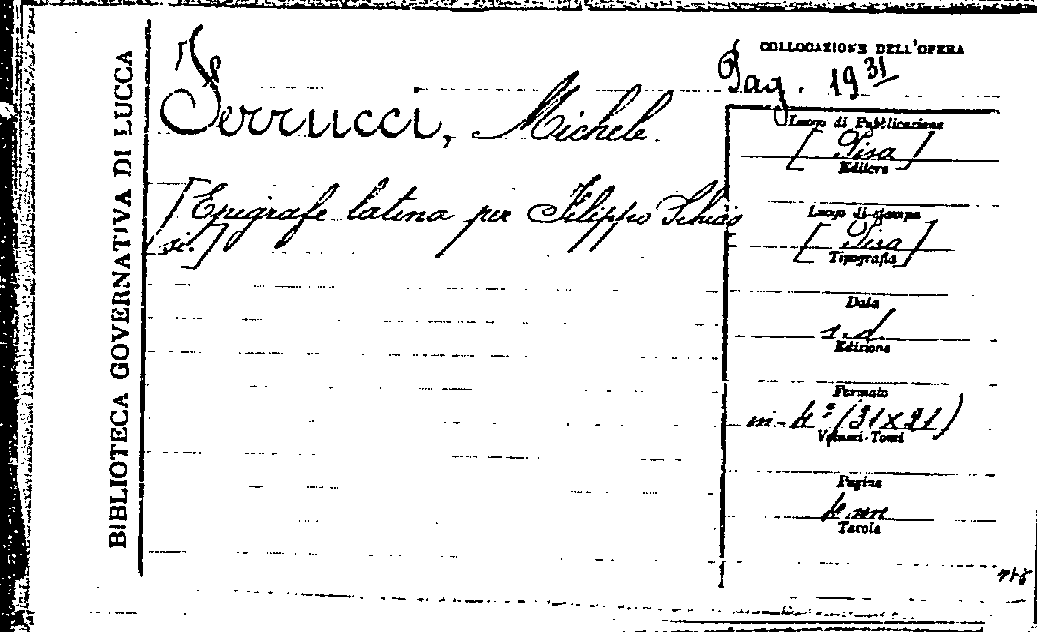 BIBLIOTECA GOVERNATIVA DI LUCCA
Ferrucci, Michele.
[Epigrafe latina per Filippo Schias
si.]
COLLOCAZIONE DELL'OPERA
Pag. 19 31
Luogo di Pubblicazione
[Pisa]
Editore
Luogo di stampa
[Pisa]
Tipografia
Data
s. d.
Edizione
Formato
in-4º (31x21)
Volumi-Tomi
Pagine
4 nn
Tavole